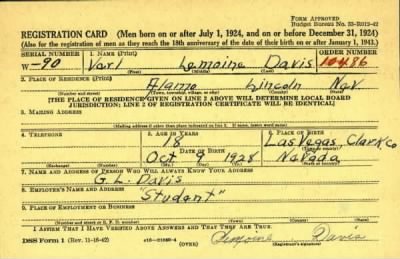 FORM APPROVED
Budget Bureau No. 33-R012-42
REGISTRATION CARD (Men born on or after July 1, 1924, and on or before December 31, 1924)
(Also for the registration of men as they reach the 18th anniversary of the date of their birth on or after January 1, 1943.)
SERIAL NUMBER 1. NAME (Print) ORDER NUMBER
W -90 Varl Lemoine Davis 10486
(First) (Middle) (Last)
2. PLACE OF RESIDENCE (Print)
Alamo Lincoln Nev.
(Number and street) (Town, township, village, or city) (County) (State)
[THE PLACE OF RESIDENCE GIVEN ON LINE 2 ABOVE WILL DETERMINE LOCAL BOARD
JURISDICTION; LINE 2 OF REGISTRATION CERTIFICATE WILL BE IDENTICAL]
3. MAILING ADDRESS
[Mailing address if other than place indicated on line 2. If same, insert word same]
4. TELEPHONE 5. AGE IN YEARS 6. PLACE OF BIRTH
18 Las Vegas Clark Co
DATE OF BIRTH (Town or county)
Oct 9 1928 Nevada
(Exchange) (Number) (Mo.) (Day) (Yr.) (State or country)
7. NAME AND ADDRESS OF PERSON WHO WILL ALWAYS KNOW YOUR ADDRESS
G. L. Davis
8. EMPLOYER'S NAME AND ADDRESS
"Student"
9. PLACE OF EMPLOYMENT OR BUSINESS
(Number and street or R. F. D. number) (Town) (County) (State)
I AFFIRM THAT I HAVE VERIFIED ABOVE ANSWERS AND THAT THEY ARE TRUE.
DSS Form 1 (Rev. 11-16-42) (OVER) Lemoine Davis
(Registrant's signature)